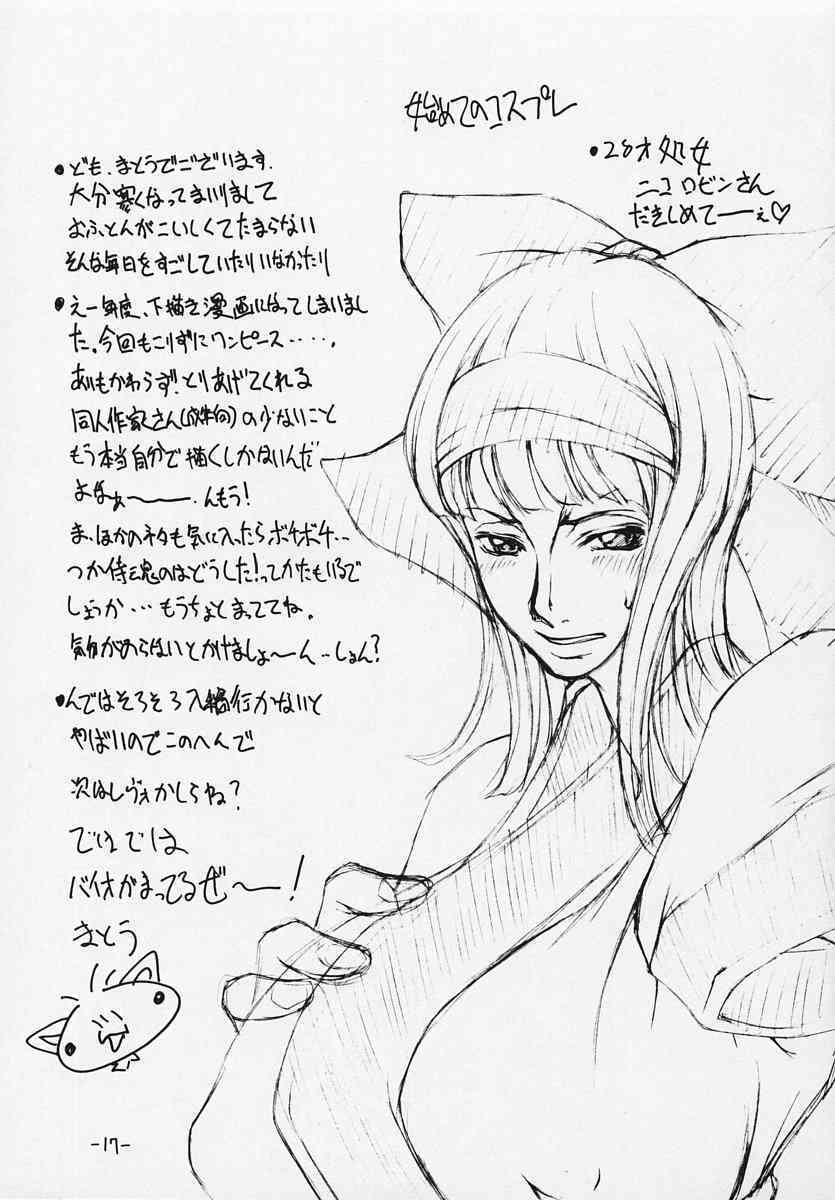 始めてのコスプレ
・28才処女
ニコ ロビンさん
だきしめてーぇ♡
・ども、まとうでございます.
大分寒くなってまいりまして
おふとんがこいしくてたまらない
そんな毎日をすごしていたりいなかったり
・えー毎度、下描き漫画になってしまいまし
た。今回もこりずにワンピース・・・・・.
あいもかわらず!とりあげてくれる
同人作家さん(成年向)の少ないこと
もう本当自分で描くしかないんだ
よなぁ〜〜.んもう!
ま、ほかのネタも気に入ったらボチボチ・・
つか侍魂のはどうした!ってかたもいるで
しょうか・・・もうちょとまっててね。
気分がのらないとかけましょ〜ん・・しょん?
・んではそろそろ入稿行かないと
やばいのでこのへんで
次はしヴォかしらね?
でわでは
バイオがまってるぜ〜!
まとう
-17-